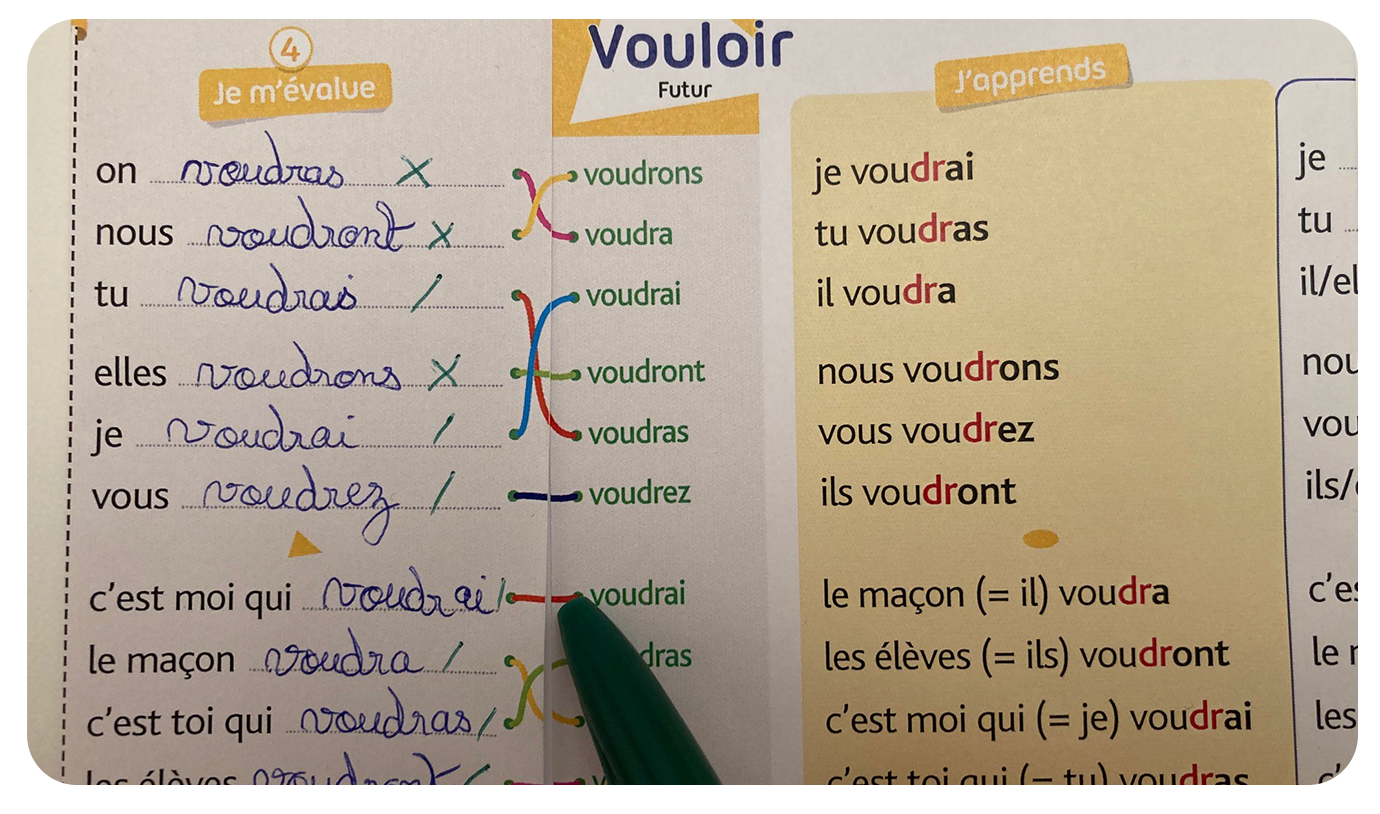 4
Je m'évalue
on voudras X
nous voudront X
tu voudras /
elles voudrons X
je voudrai /
vous voudrez /
c'est moi qui voudrai /
le maçon voudra /
c'est toi qui voudras /
les élèves voudront /
Vouloir
Futur
voudrons
voudra
voudrai
voudront
voudras
voudrez
voudrai
dras
v
J'apprends
je voudrai
tu voudras
il voudra
nous voudrons
vous voudrez
ils voudront
le maçon (= il) voudra
les élèves (= ils) voudront
c'est moi qui (= je) voudrai
c'est toi qui (= tu) voudras
je
tu
il/el
nou
vou
ils/
c'es
le
les
c'